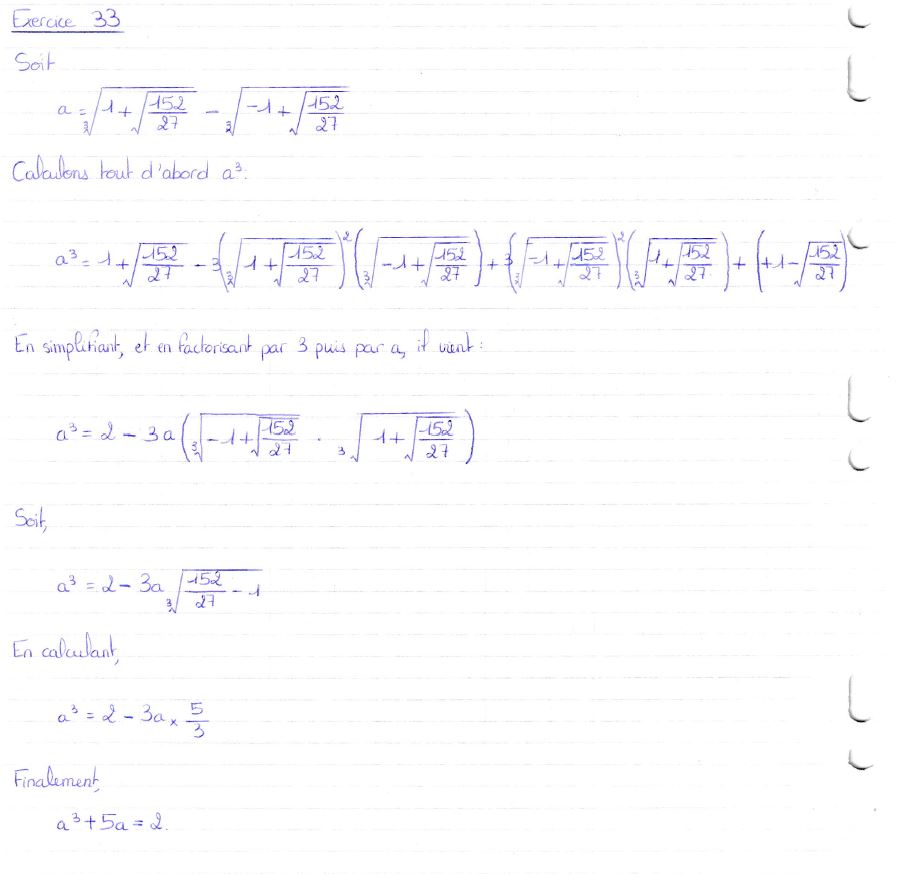 Exercice 33
Soit
a = ∛(1 + √(152/27)) − ∛(−1 + √(152/27))
Calculons tout d'abord a³:
a³ = 1 + √(152/27) − 3(∛(1 + √(152/27)))²(∛(−1 + √(152/27))) + 3(∛(−1 + √(152/27)))²(∛(1 + √(152/27))) + (+1 − √(152/27))
En simplifiant, et en factorisant par 3 puis par a, il vient :
a³ = 2 − 3a(∛(−1 + √(152/27)) · ∛(1 + √(152/27)))
Soit,
a³ = 2 − 3a ∛(152/27 − 1)
En calculant,
a³ = 2 − 3a × 5/3
Finalement,
a³ + 5a = 2.